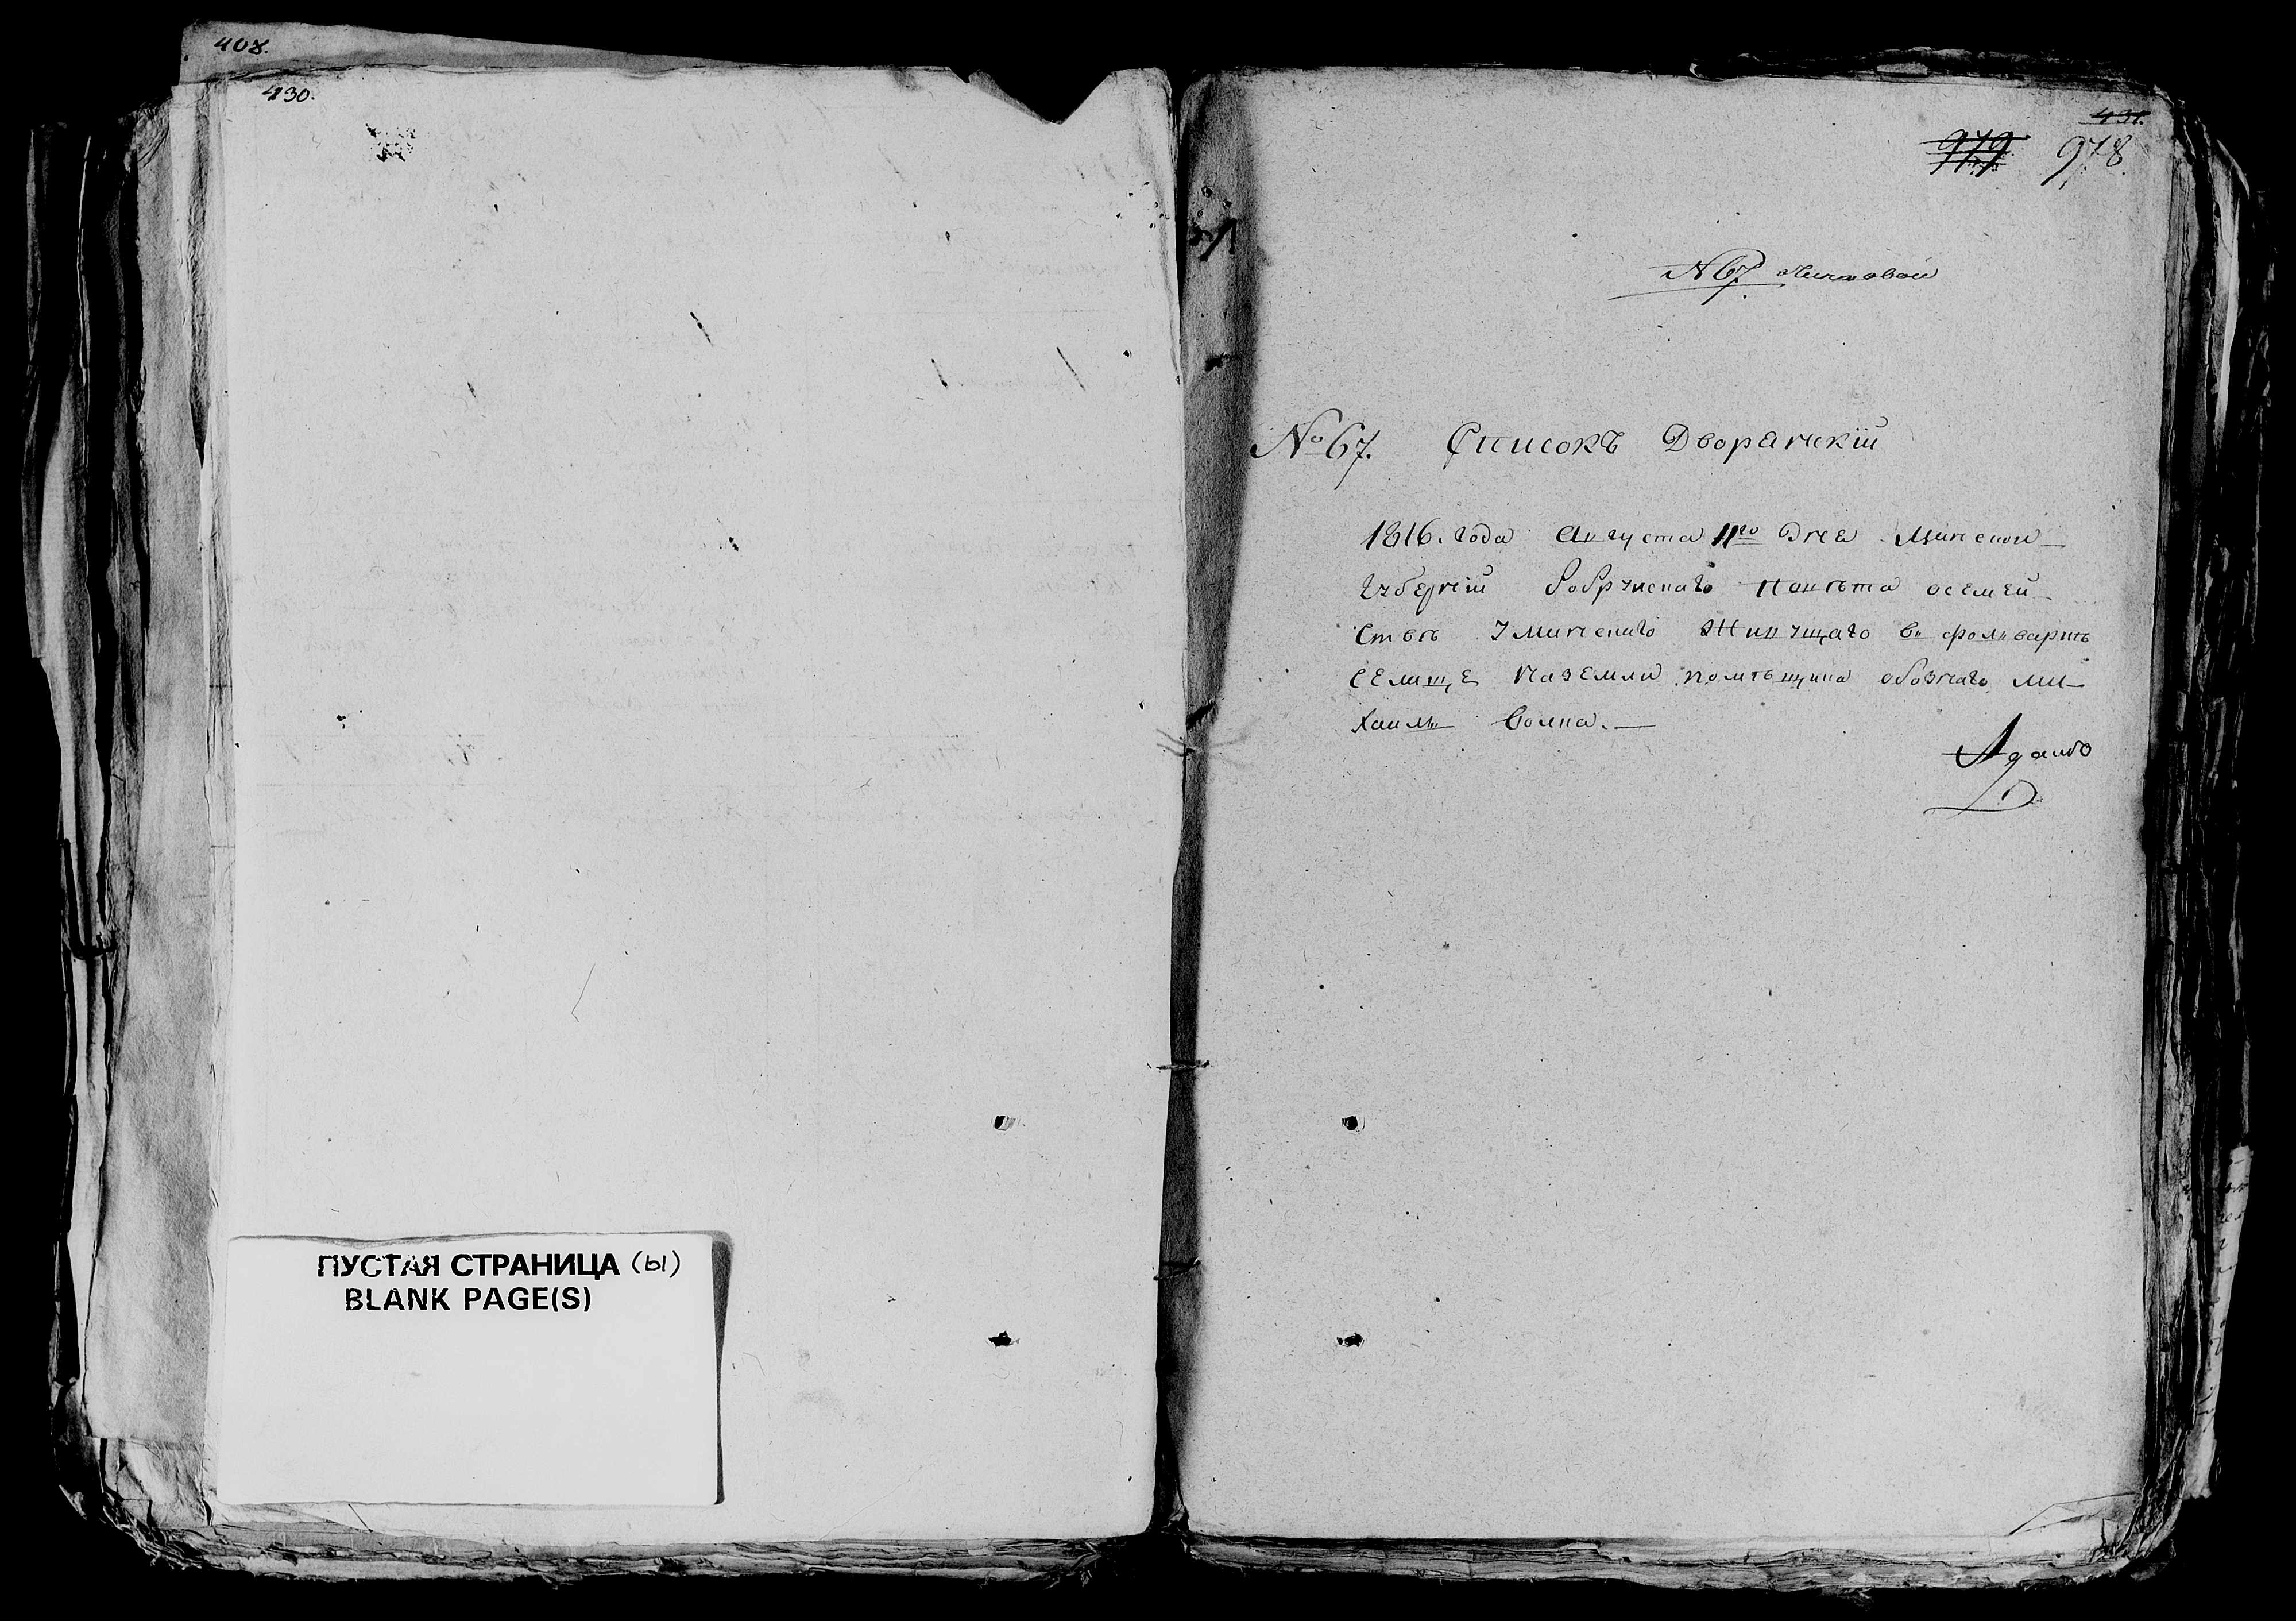 408.
430.
431.
979 978
№67
№ 67. Списокъ Дворянскій
1816. года Августа 11го Дня Минской
Губерніи Бобруйскаго Повѣта осемей
ствѣ Уминскаго Живущаго въ фольваркѣ
Селище Наземли помѣщика обознаго Ми
хаила Волка.
ПУСТАЯ СТРАНИЦА (Ы)
BLANK PAGE(S)